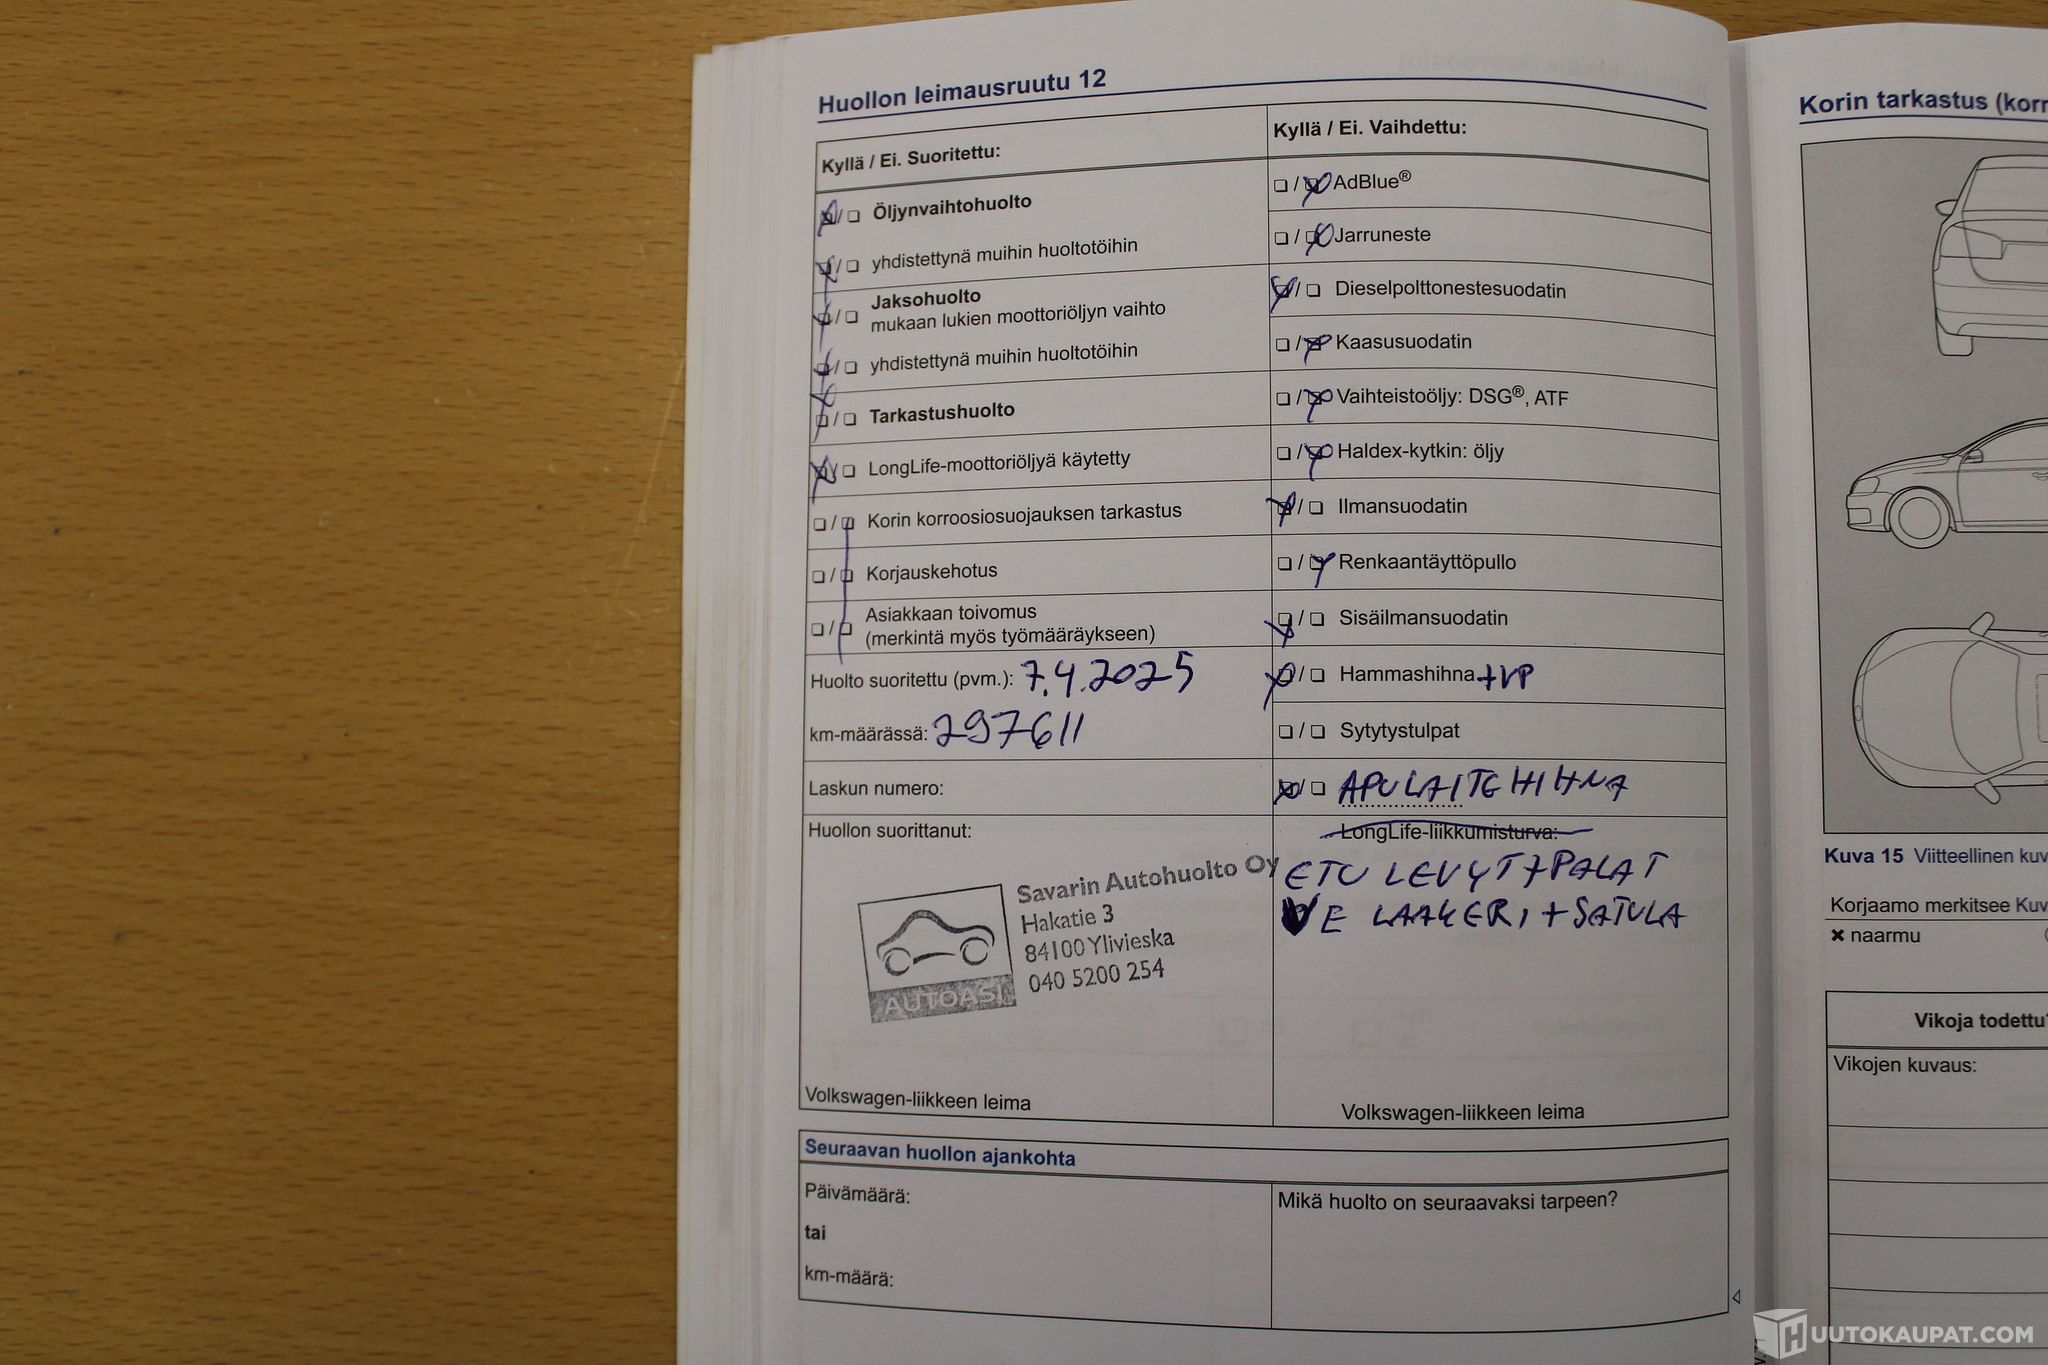 Huollon leimausruutu 12
Kyllä / Ei. Suoritettu:
Öljynvaihtohuolto
yhdistettynä muihin huoltotöihin
Jaksohuolto
mukaan lukien moottoriöljyn vaihto
yhdistettynä muihin huoltotöihin
Tarkastushuolto
LongLife-moottoriöljyä käytetty
Korin korroosiosuojauksen tarkastus
Korjauskehotus
Asiakkaan toivomus
(merkintä myös työmääräykseen)
Huolto suoritettu (pvm.): 7.4.2025
km-määrässä: 297611
Laskun numero:
Huollon suorittanut:
Savarin Autohuolto Oy
Hakatie 3
84100 Ylivieska
040 5200 254
AUTOASI
Volkswagen-liikkeen leima
Kyllä / Ei. Vaihdettu:
AdBlue®
Jarruneste
Dieselpolttonestesuodatin
Kaasusuodatin
Vaihteistoöljy: DSG®, ATF
Haldex-kytkin: öljy
Ilmansuodatin
Renkaantäyttöpullo
Sisäilmansuodatin
Hammashihna +VP
Sytytystulpat
APULAITEHIHNA
LongLife-liikkumisturva:
ETU LEVYT+PALAT
VE LAAKERI+SATULA
Volkswagen-liikkeen leima
Seuraavan huollon ajankohta
Päivämäärä:
tai
km-määrä:
Mikä huolto on seuraavaksi tarpeen?
Korin tarkastus (korr
Kuva 15 Viitteellinen kuv
Korjaamo merkitsee Kuv
✖ naarmu
Vikoja todettu?
Vikojen kuvaus:
HUUTOKAUPAT.COM